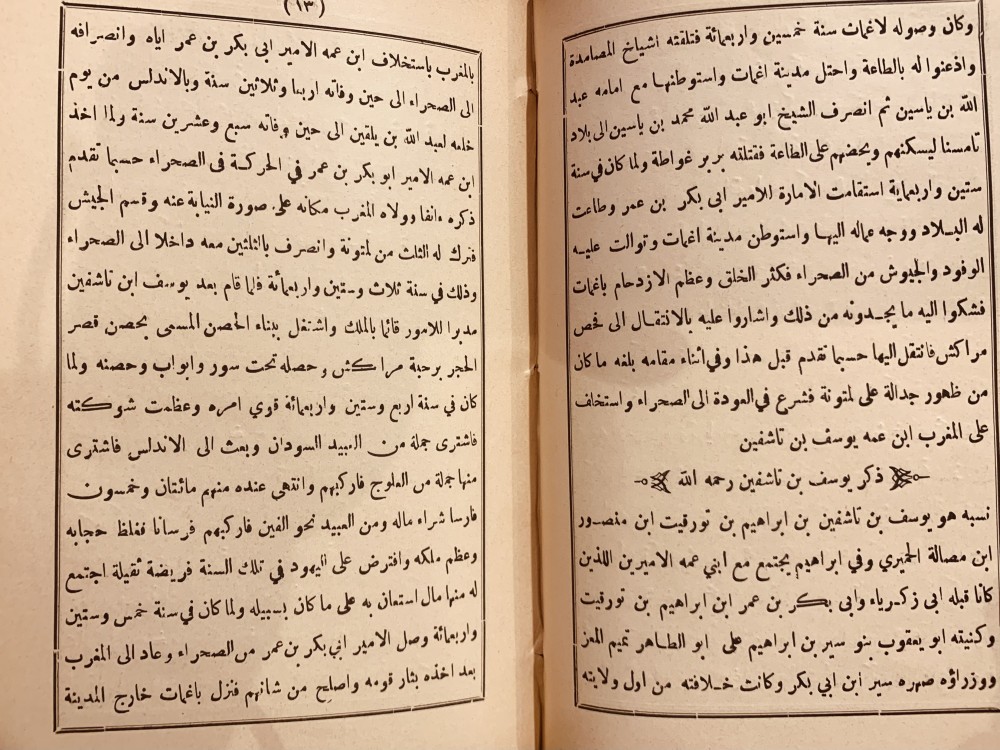 وكان وصوله لاغمات سنة خمسين واربعمائة فتلقته اشياخ المصامدة
واذعنوا له بالطاعة واحتل مدينة اغمات واستوطنها مع امامه عبد
الله بن ياسين ثم انصرف الشيخ ابو عبد الله محمد بن ياسين الى بلاد
تامسنا ليسكنهم ويحضهم على الطاعة فقتلته بربر غواطة ولما كان في سنة
ستين واربعماية استقامت الامارة للامير ابى بكر بن عمر وطاعت
له البلاد ووجه عماله اليها واستوطن مدينة اغمات وتوالت عليه
الوفود والجيوش من الصحراء فكثر الخلق وعظم الازدحام باغمات
فشكوا اليه ما يجدونه من ذلك واشاروا عليه بالانتقال الى فحص
مراكش فانتقل اليها حسبما تقدم قبل هذا وفي اثناء مقامه بلغه ما كان
من ظهور جدالة على لمتونة فشرع في العودة الى الصحراء واستخلف
على المغرب ابن عمه يوسف بن تاشفين
ذكر يوسف بن تاشفين رحمه الله
نسبه هو يوسف بن تاشفين بن ابراهيم بن تورقيت ابن منصور
ابن مصالة الحميري وفي ابراهيم يجتمع مع ابني عمه الاميرين اللذين
كانا قبله ابى زكرياء وابى بكر بن عمر ابن ابراهيم بن تورقيت
وكنيته ابو يعقوب بنو سير بن ابراهيم على ابو الطاهر تميم المعز
ووزراؤه صهره سير ابن ابي بكر وكانت خلافته من اول ولايته
(١٣)
بالمغرب باستخلاف ابن عمه الامير ابى بكر بن عمر اياه وانصرافه
الى الصحراء الى حين وفاته اربعا وثلاثين سنة وبالاندلس من يوم
خلعه لعبد الله بن بلقين الى حين وفاته سبع وعشرين سنة ولما اخذ
ابن عمه الامير ابو بكر بن عمر في الحركة فى الصحراء حسبما تقدم
ذكره ءانفا وولاه المغرب مكانه على صورة النيابة عنه وقسم الجيش
فترك له الثلث من لمتونة وانصرف بالثلثين معه داخلا الى الصحراء
وذلك في سنة ثلاث وستين واربعمائة فلما قام بعد يوسف ابن تاشفين
مدبرا للامور قائما بالملك واشتغل ببناء الحصن المسمى بحصن قصر
الحجر برحبة مراكش وحصله تحت سور وابواب وحصنه ولما
كان في سنة اربع وستين واربعمائة قوي امره وعظمت شوكته
فاشترى جملة من العبيد السودان وبعث الى الاندلس فاشترى
منها جملة من العلوج فاركبهم وانتهى عنده منهم مائتان وخمسون
فارسا شراء ماله ومن العبيد نحو الفين فاركبهم فرسانا فغلظ حجابه
وعظم ملكه وافترض على اليهود في تلك السنة فريضة ثقيلة اجتمع
له منها مال استعان به على ما كان بسبيله ولما كان في سنة خمس وستين
واربعمائة وصل الامير ابي بكر بن عمر من الصحراء وعاد الى المغرب
بعد اخذه بثار قومه واصلح من شانهم فنزل باغمات خارج المدينة